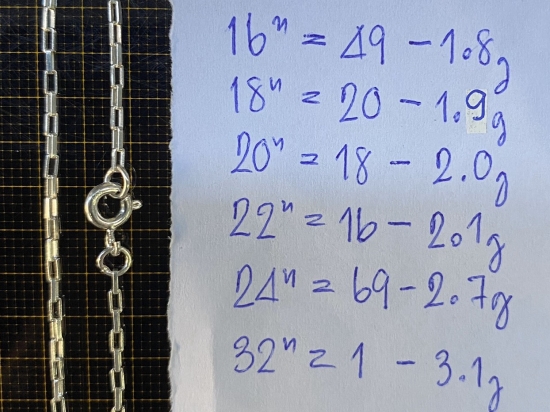 16" = 49 - 1.8g
18" = 20 - 1.9g
20" = 18 - 2.0g
22" = 16 - 2.1g
24" = 69 - 2.7g
32" = 1 - 3.1g